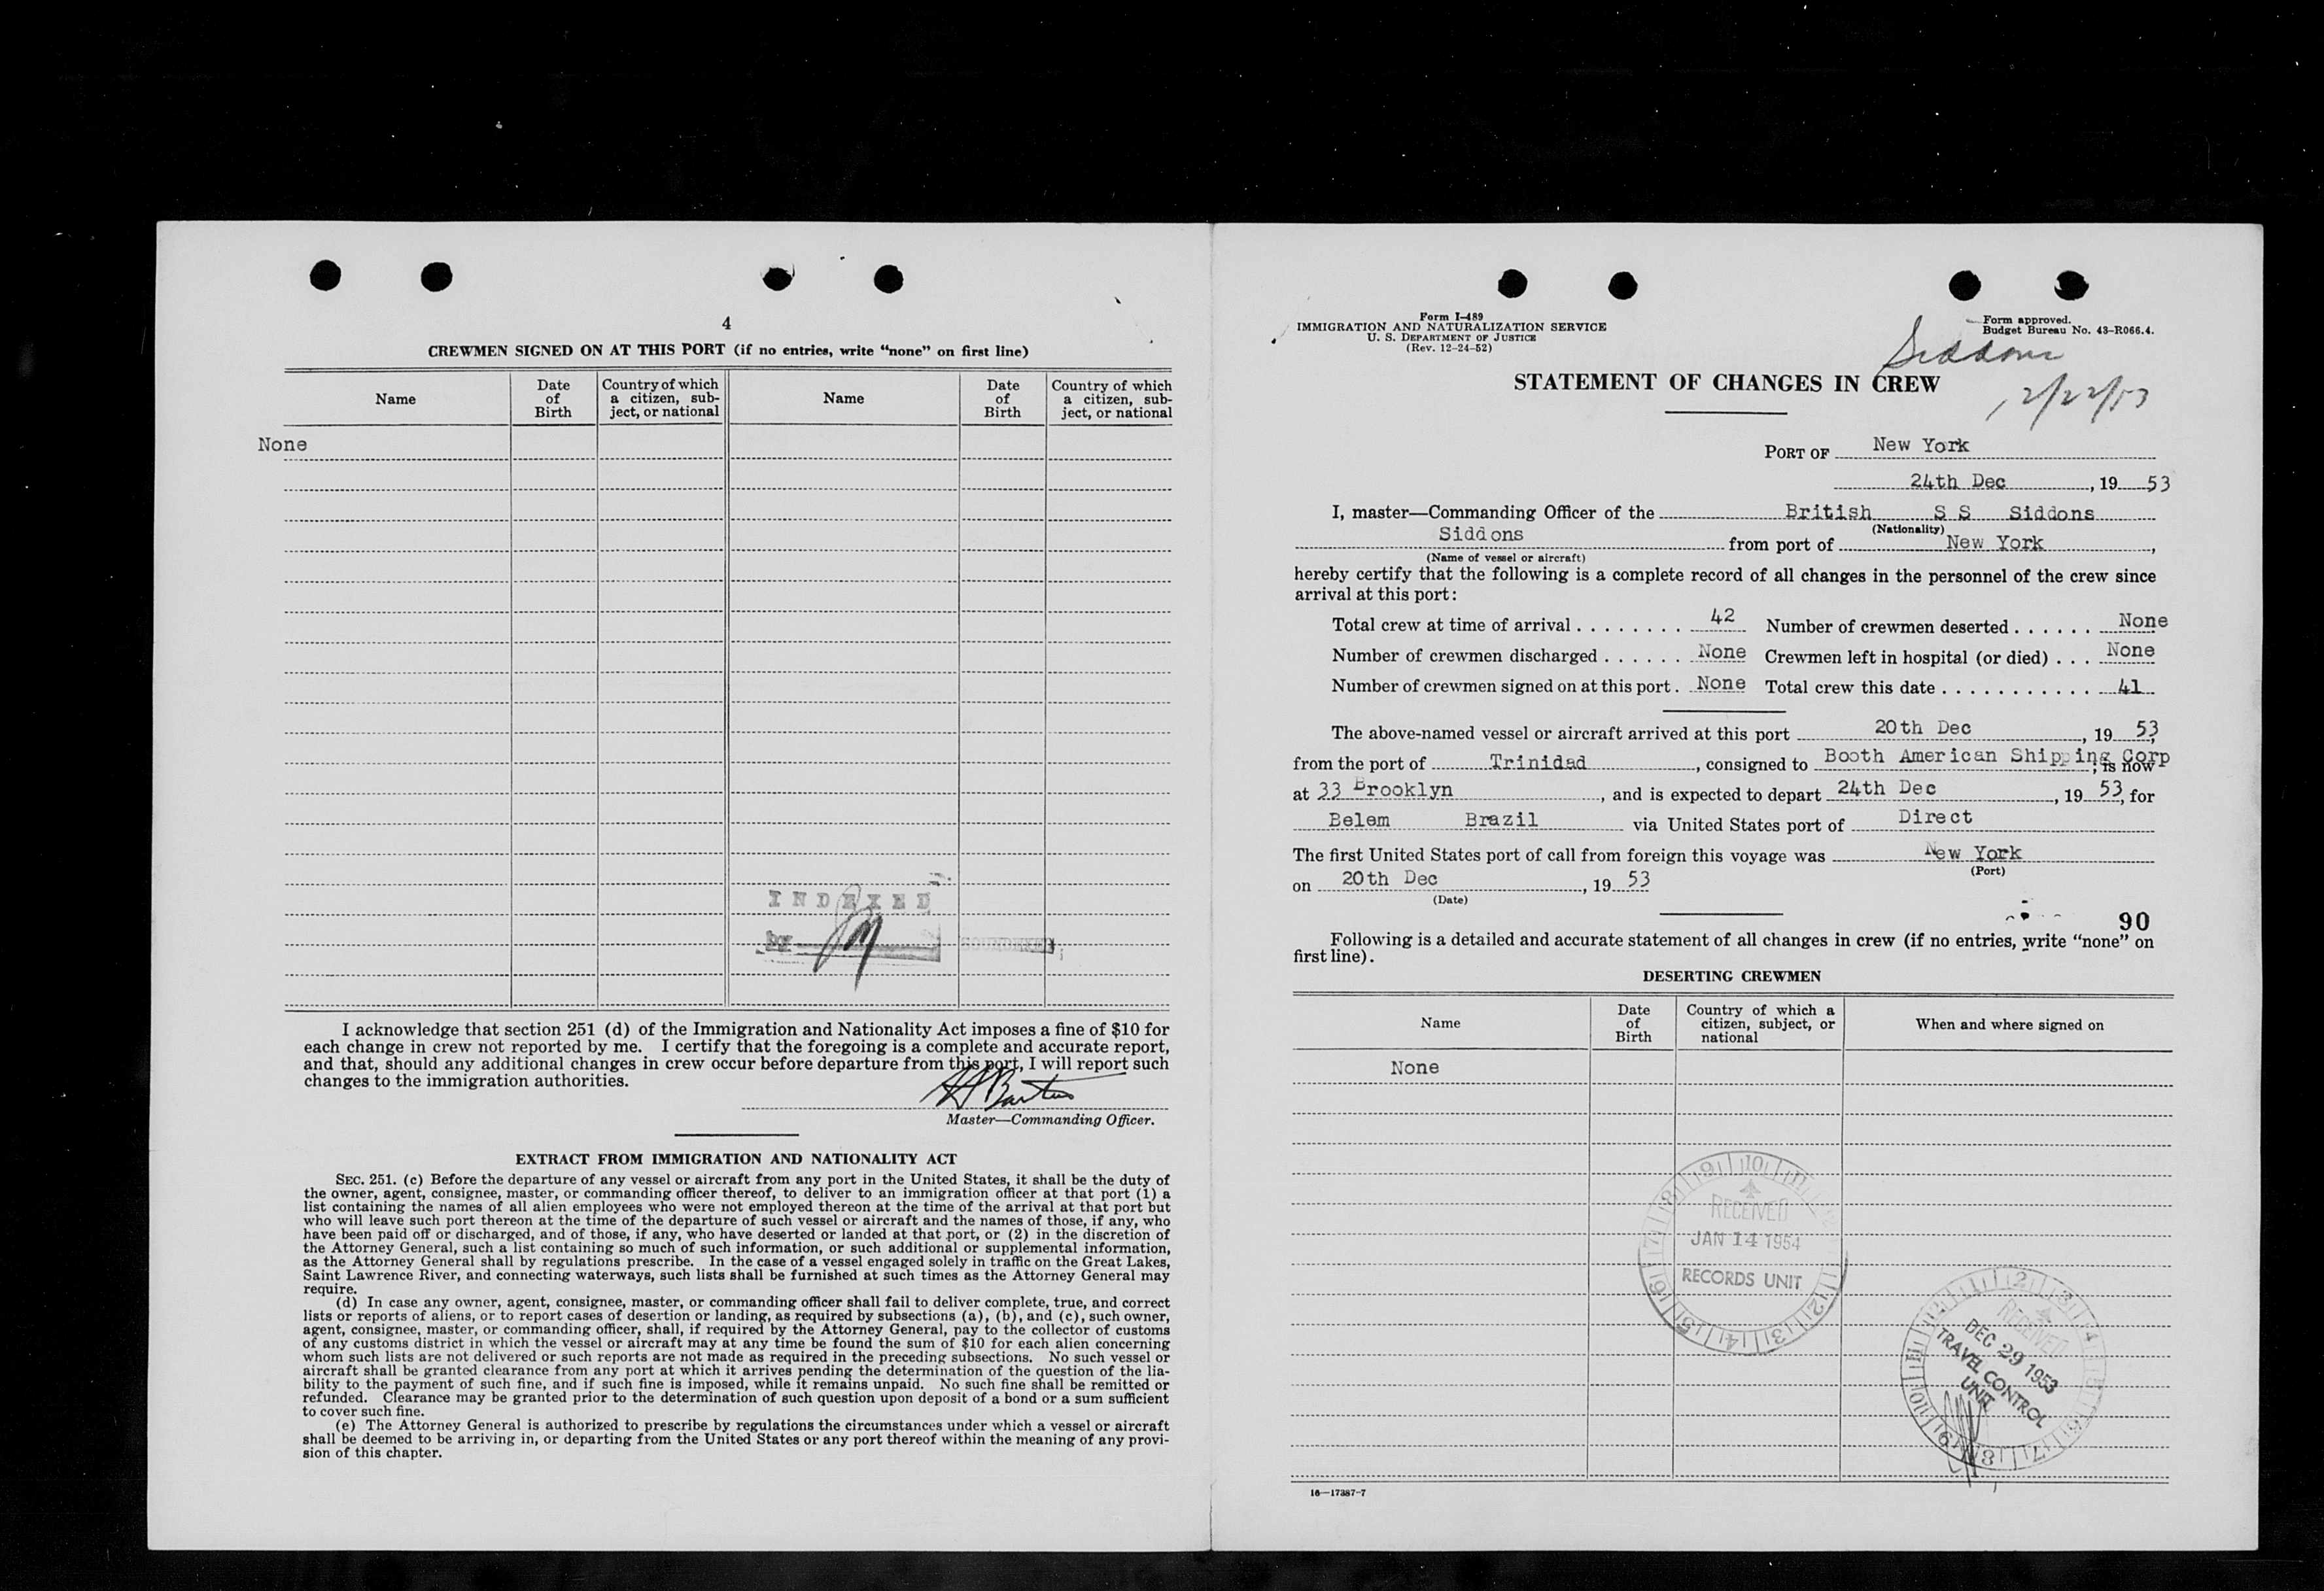 4
CREWMEN SIGNED ON AT THIS PORT (if no entries, write “none” on first line)
Name
Date of Birth
Country of which a citizen, sub-ject, or national
Name
Date of Birth
Country of which a citizen, sub-ject, or national
None
INDEXED
by
I acknowledge that section 251 (d) of the Immigration and Nationality Act imposes a fine of $10 for
each change in crew not reported by me. I certify that the foregoing is a complete and accurate report,
and that, should any additional changes in crew occur before departure from this port, I will report such
changes to the immigration authorities.
Master—Commanding Officer.
EXTRACT FROM IMMIGRATION AND NATIONALITY ACT
SEC. 251. (c) Before the departure of any vessel or aircraft from any port in the United States, it shall be the duty of
the owner, agent, consignee, master, or commanding officer thereof, to deliver to an immigration officer at that port (1) a
list containing the names of all alien employees who were not employed thereon at the time of the arrival at that port but
who will leave such port thereon at the time of the departure of such vessel or aircraft and the names of those, if any, who
have been paid off or discharged, and of those, if any, who have deserted or landed at that port, or (2) in the discretion of
the Attorney General, such a list containing so much of such information, or such additional or supplemental information,
as the Attorney General shall by regulations prescribe. In the case of a vessel engaged solely in traffic on the Great Lakes,
Saint Lawrence River, and connecting waterways, such lists shall be furnished at such times as the Attorney General may
require.
(d) In case any owner, agent, consignee, master, or commanding officer shall fail to deliver complete, true, and correct
lists or reports of aliens, or to report cases of desertion or landing, as required by subsections (a), (b), and (c), such owner,
agent, consignee, master, or commanding officer, shall, if required by the Attorney General, pay to the collector of customs
of any customs district in which the vessel or aircraft may at any time be found the sum of $10 for each alien concerning
whom such lists are not delivered or such reports are not made as required in the preceding subsections. No such vessel or
aircraft shall be granted clearance from any port at which it arrives pending the determination of the question of the lia-
bility to the payment of such fine, and if such fine is imposed, while it remains unpaid. No such fine shall be remitted or
refunded. Clearance may be granted prior to the determination of such question upon deposit of a bond or a sum sufficient
to cover such fine.
(e) The Attorney General is authorized to prescribe by regulations the circumstances under which a vessel or aircraft
shall be deemed to be arriving in, or departing from the United States or any port thereof within the meaning of any provi-
sion of this chapter.
Form I-489
IMMIGRATION AND NATURALIZATION SERVICE
U. S. DEPARTMENT OF JUSTICE
(Rev. 12-24-52)
Form approved.
Budget Bureau No. 43-R066.4.
Siddons
12/22/53
STATEMENT OF CHANGES IN CREW
PORT OF New York
24th Dec, 19 53
I, master—Commanding Officer of the British S S Siddons
(Nationality)
Siddons from port of New York,
(Name of vessel or aircraft)
hereby certify that the following is a complete record of all changes in the personnel of the crew since
arrival at this port:
Total crew at time of arrival 42 Number of crewmen deserted None
Number of crewmen discharged None Crewmen left in hospital (or died) None
Number of crewmen signed on at this port. None Total crew this date 41
The above-named vessel or aircraft arrived at this port 20th Dec, 19 53
from the port of Trinidad, consigned to Booth American Shipping Corp; is now
at 33 Brooklyn, and is expected to depart 24th Dec, 19 53, for
Belem Brazil via United States port of Direct
The first United States port of call from foreign this voyage was New York
(Port)
on 20th Dec, 19 53
(Date)
90
Following is a detailed and accurate statement of all changes in crew (if no entries, write “none” on
first line).
DESERTING CREWMEN
Name
Date of Birth
Country of which a citizen, subject, or national
When and where signed on
None
RECEIVED
JAN 14 1954
RECORDS UNIT
RECEIVED
DEC 29 1953
TRAVEL CONTROL
UNIT
16—17387-7